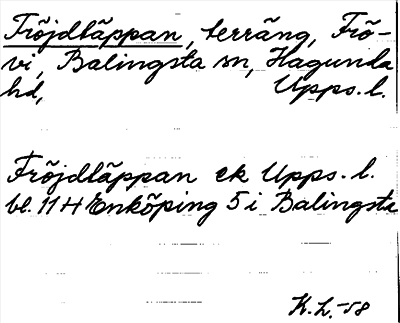 Fröjdtäppan, terräng, Frö-
vi, Balingsta sn, Hagunda
hd, Upps. l.
Fröjdtäppan ek Upps. l.
bl. 11 H Enköping 5 i Balingsta
K. L. -58